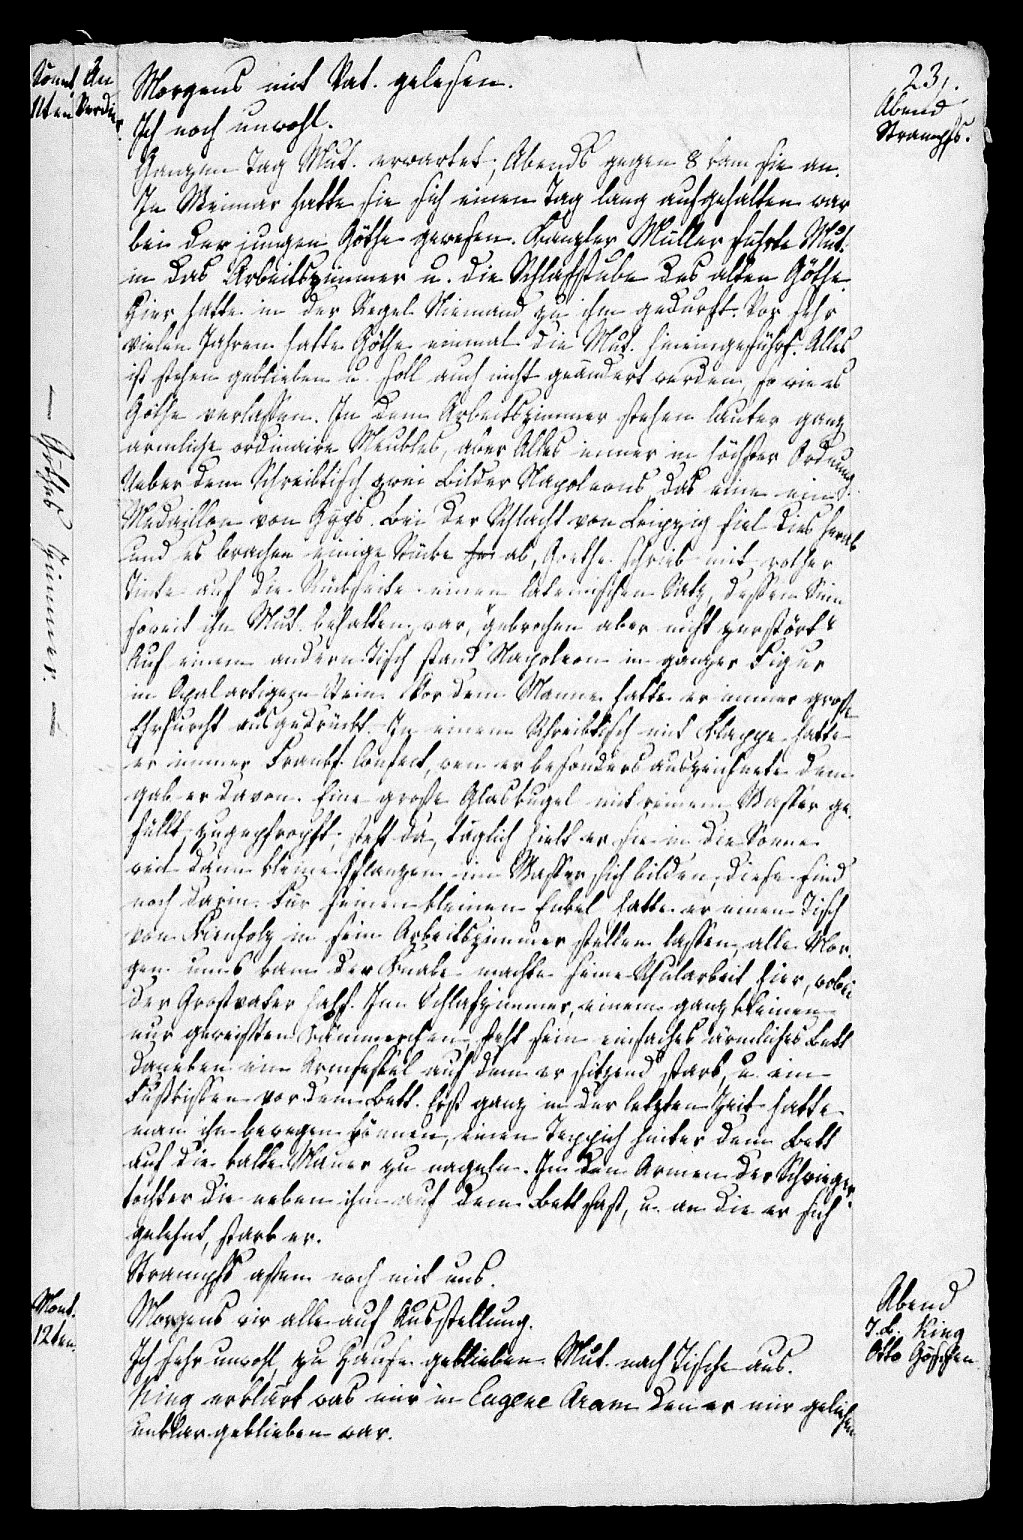 23,
Sonnt. An
11ten Verdi
er.
Abend
Strampfs.
Morgens mit Vat. gelesen.
Ich noch unwohl.
Ganzen Tag Mut. erwartet; Abends gegen 8 kam sie an.
In Weimar hatte sie sich einen Tag lang aufgehalten war
bei der jungen Göthe gewesen. Kanzler Müller führte Mut.
in das Arbeitszimmer u. die Schlafstube des alten Göthe
Hier hatte in der Regel Niemand zu ihm gedurft. Vor sehr
vielen Jahren hatte Göthe einmal die Mut. hineingeführt. Alles
ist stehen geblieben u. soll auch nicht geändert werden, so wie es
Göthe verlassen. In dem Arbeitszimmer stehen lauter ganz
ärmliche ordinaire Meubles, aber Alles immer in höchster Ordnung.
Ueber dem Schreibtisch zwei Bilder Napoleons das eine ein
Medaillon von Gyps. Bei der Schlacht von Leipzig fiel dies herab
und es brachen einige Stücke ab, Goethe schrieb mit rother
Tinte auf die Rückseite einen lateinischen Satz, dessen Sinn
soweit ihn Mut. behalten, war, "gebrochen aber nicht zerstört"
Auf einem andern Tisch stand Napoleon in ganzer Figur
in Opal artigem Stein. Vor dem Manne hatte er immer große
Ehrfurcht ausgedrückt. In einem Schreibtisch mit Klappe hatte
er immer Frankf. Confect, wen er besonders auszeichnete dem
gab er davon. Eine große Glaskugel mit reinem Wasser ge
füllt, zugepfropft, steht da, täglich hielt er sie in die Sonne
weil dann kleine Pflanzen im Wasser sich bilden, diese sind
noch darin. Für seinen kleinen Enkel hatte er einen Tisch
von Kienholz in sein Arbeitszimmer stellen lassen, alle Mor
gen um 6 kam der Knabe machte seine Schularbeit hier, wobei
der Großvater half. Im Schlafzimmer, einem ganz kleinen
nur geweißten Kämmerchen steht sein einfaches ärmliches Bett
daneben ein Armsessel auf dem er sitzend starb, u. ein
Fußkissen vor dem Bett. Erst ganz in der letzten Zeit hatte
man ihn bewegen können, einen Teppich hinter dem Bett
auf die kalte Mauer zu nageln. In den Armen der Schwieger
tochter die neben ihm auf dem Bett saß, u. an die er sich
gelehnt, starb er.
Strampfs aßen noch mit uns.
— Göthes Zimmer. —
Mont.
12ten.
Abend
J. d. King
Otto Göschen
Morgens wir alle auf Ausstellung.
Ich sehr unwohl, zu Hause geblieben Mut. nach Tische aus.
King erklärt was mir in Eugene Aram den er mir geliehen
unklar geblieben war.